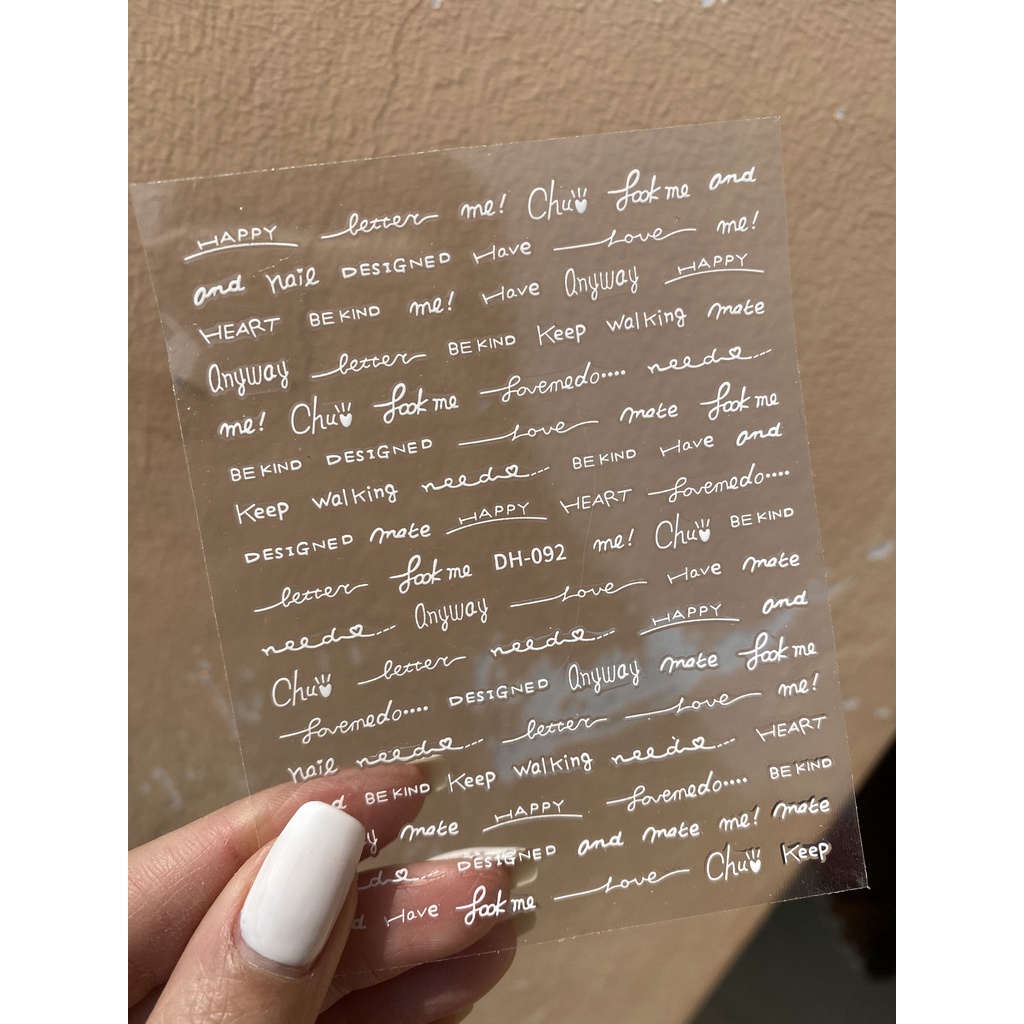 HAPPY letter me! Chu look me and
and nail DESIGNED Have Love me!
HEART BE KIND me! Have Anyway HAPPY
Anyway letter BE KIND Keep walking mate
me! Chu look me Lovemedo.... need...
BE KIND DESIGNED Love mate look me
Keep walking need... BE KIND Have and
DESIGNED mate HAPPY HEART Lovemedo....
letter look me DH-092 me! Chu BE KIND
need... Anyway Love Have mate
Chu letter need... HAPPY and
Lovemedo.... DESIGNED Anyway mate look me
nail need... letter Love me!
BE KIND Keep walking need... HEART
mate HAPPY Lovemedo.... BE KIND
DESIGNED and mate me! mate
Have look me Love Chu Keep